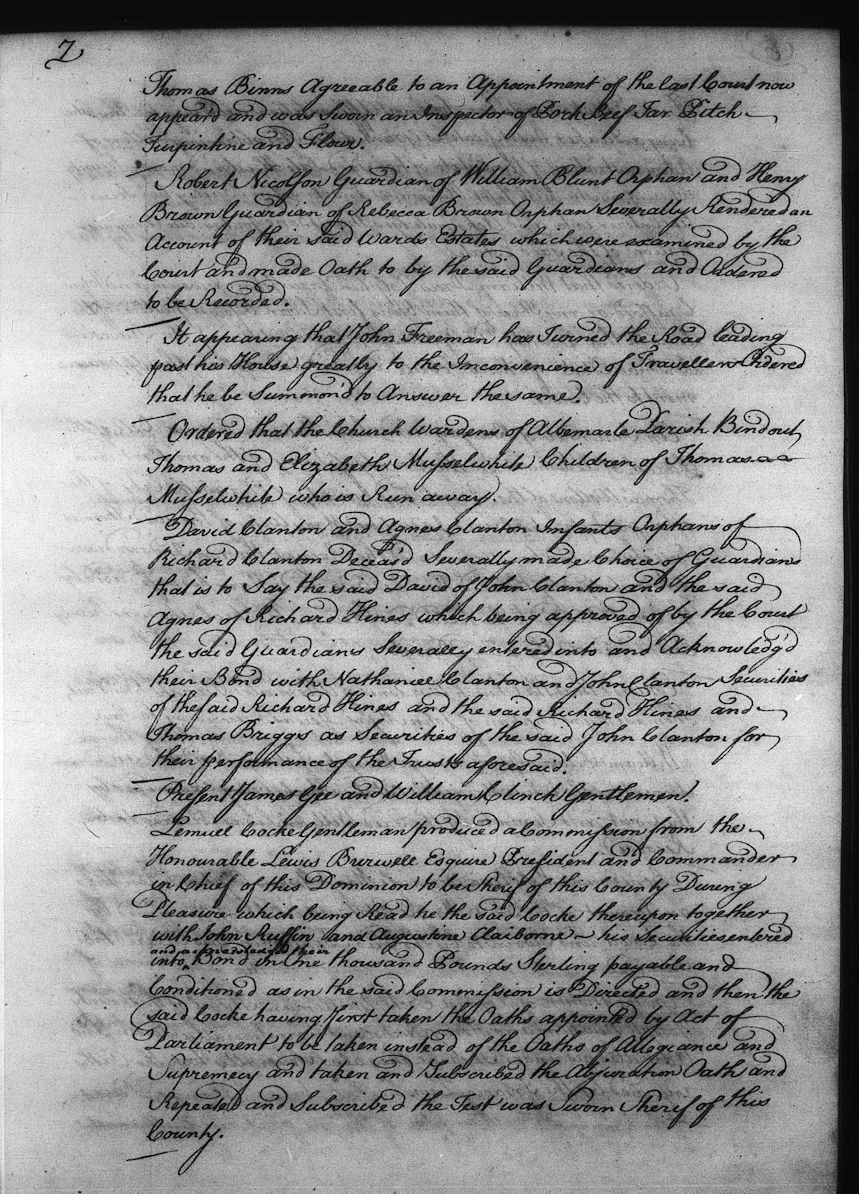 7
Thomas Binns Agreeable to an Appointment of the last Court now
appear'd and was Sworn an Inspector of Pork Beef Tar Pitch
Turpintine and Flour.
Robert Nicolson Guardian of William Blunt Orphan and Henry
Brown Guardian of Rebecca Brown Orphan Severally Rendered an
Account of their said Wards Estates which were examined by the
Court and made Oath to by the said Guardians and Ordered
to be Recorded.
It appearing that John Freeman has Turned the Road leading
past his House greatly to the Inconvenience of Travellers Ordered
that he be Summon'd to Answer the same.
Ordered that the Church Wardens of Albemarle Parish Bind out
Thomas and Elizabeth Musselwhite Children of Thomas
Musselwhite who is Run away.
David Clanton and Agnes Clanton Infants Orphans of
Richard Clanton Deceas'd Severally made Choice of Guardians
that is to Say the said David of John Clanton and the said
Agnes of Richard Hines which being approved of by the Court
the said Guardians Severally entered into and Acknowledg'd
their Bond with Nathaniel Clanton and John Clanton Securities
of the said Richard Hines and the said Richard Hines and
Thomas Briggs as Securities of the said John Clanton for
their performance of the Trusts aforesaid.
Present James Gee and William Clinch Gentlemen.
Lemuel Cocke Gentleman produced a Commission from the
Honourable Lewis Burwell Esquire President and Commander
in Chief of this Dominion to be Sherif of this County During
Pleasure which being Read he the said Cocke thereupon together
with John Ruffin and Augustine Claiborne his Securities entered
and acknowledged their
into Bond in One thousand Pounds Sterling payable and
Conditioned as in the said Commission is Directed and then the
said Cocke having first taken the Oaths appointed by Act of
Parliament to be taken instead of the Oaths of Allegiance and
Supremecy and taken and Subscribed the Abjuration Oath and
Repeated and Subscribed the Test was Sworn Sherif of this
County.